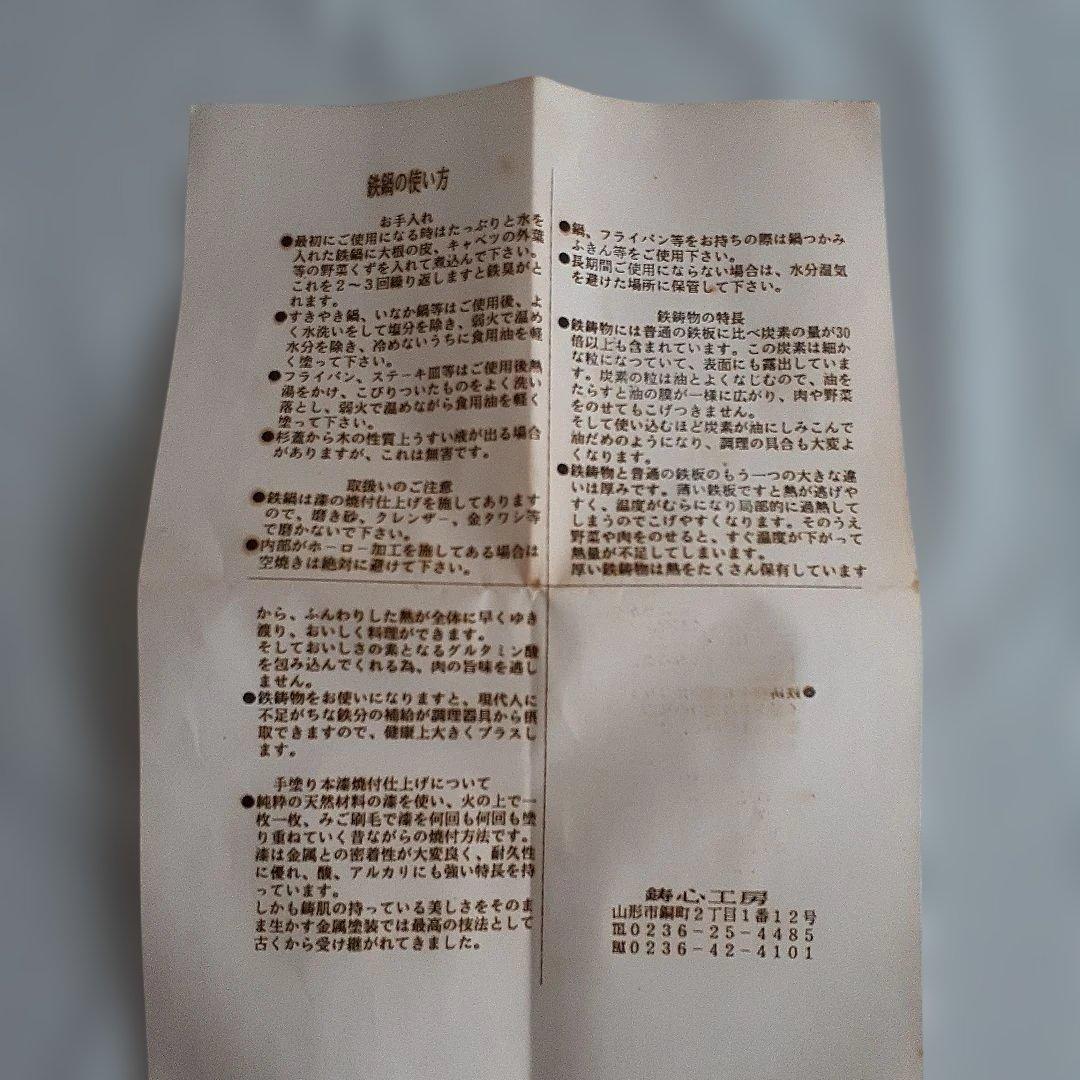 鉄鍋の使い方
お手入れ
●最初にご使用になる時はたっぷりと水を
入れた鉄鍋に大根の皮、キャベツの外葉
等の野菜くずを入れて煮込んで下さい。
これを2〜3回繰り返しますと鉄臭がと
れます。
●すきやき鍋、いなか鍋等はご使用後、よ
く水洗いをして塩分を除き、弱火で温め
水分を除き、冷めないうちに食用油を軽
く塗って下さい。
●フライパン、ステーキ皿等はご使用後熱
湯をかけ、こびりついたものをよく洗い
落とし、弱火で温めながら食用油を軽く
塗って下さい。
●杉蓋から木の性質上うすい液が出る場合
がありますが、これは無害です。
取扱いのご注意
●鉄鍋は漆の焼付仕上げを施してあります
ので、磨き砂、クレンザー、金タワシ等
で磨かないで下さい。
●内部がホーロー加工を施してある場合は
空焼きは絶対に避けて下さい。
●鍋、フライパン等をお持ちの際は鍋つかみ
ふきん等をご使用下さい。
●長期間ご使用にならない場合は、水分湿気
を避けた場所に保管して下さい。
鉄鋳物の特長
●鉄鋳物には普通の鉄板に比べ炭素の量が30
倍以上も含まれています。この炭素は細か
な粒になつていて、表面にも露出していま
す。炭素の粒は油とよくなじむので、油を
たらすと油の膜が一様に広がり、肉や野菜
をのせてもこげつきません。
そして使い込むほど炭素が油にしみこんで
油だめのようになり、調理の具合も大変よ
くなります。
●鉄鋳物と普通の鉄板のもう一つの大きな違
いは厚みです。薄い鉄板ですと熱が逃げや
すく、温度がむらになり局部的に過熱して
しまうのでこげやすくなります。そのうえ
野菜や肉をのせると、すぐ温度が下がって
熱量が不足してしまいます。
厚い鉄鋳物は熱をたくさん保有しています
から、ふんわりした熱が全体に早くゆき
渡り、おいしく料理ができます。
そしておいしさの素となるグルタミン酸
を包み込んでくれる為、肉の旨味を逃し
ません。
●鉄鋳物をお使いになりますと、現代人に
不足がちな鉄分の補給が調理器具から摂
取できますので、健康上大きくプラスし
ます。
手塗り本漆焼付仕上げについて
●純粋の天然材料の漆を使い、火の上で一
枚一枚、みご刷毛で漆を何回も何回も塗
り重ねていく昔ながらの焼付方法です。
漆は金属との密着性が大変良く、耐久性
に優れ、酸、アルカリにも強い特長を持
っています。
しかも鋳肌の持っている美しさをそのま
ま生かす金属塗装では最高の技法として
古くから受け継がれてきました。
鋳心工房
山形市銅町2丁目1番12号
TEL0236-25-4485
FAX0236-42-4101